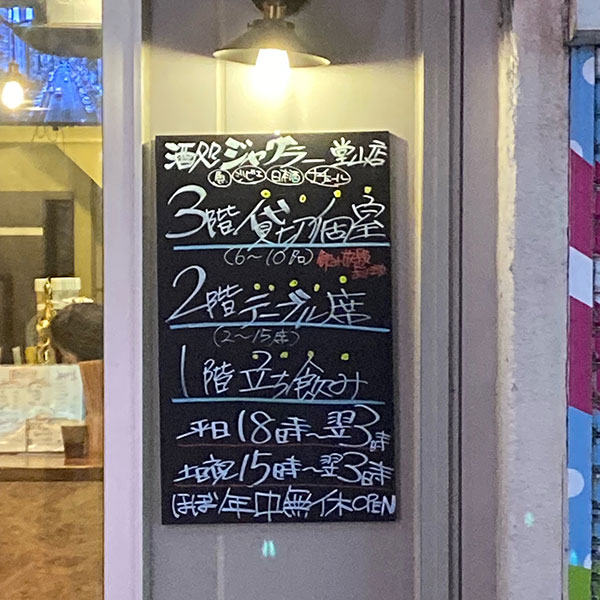 酒処ジャックラー堂山店
魚 ジビエ 日本酒 ナチュール
3階貸切個室
(6〜10名)
2階テーブル席
(2〜15席)
1階立ち飲み
平日18時〜翌3時
土日祝15時〜翌3時
ほぼ年中無休OPEN